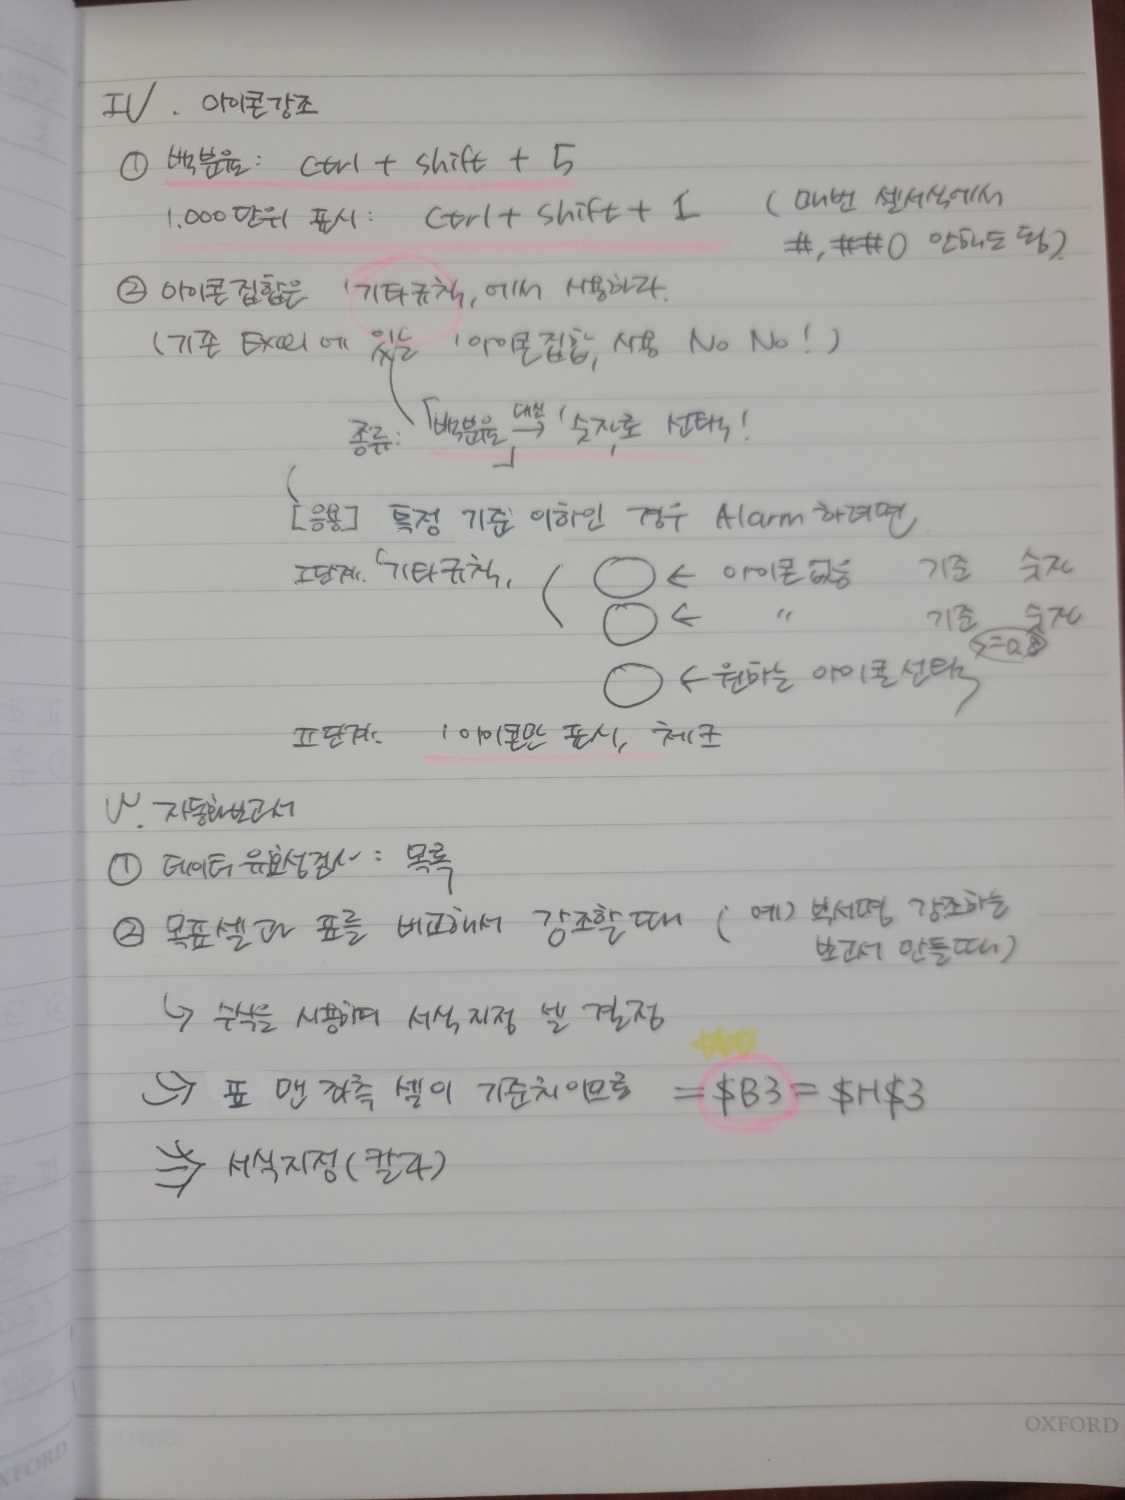 IV. 아이콘강조
① 백분율: ctrl + shift + 5
1.000단위 표시: ctrl + shift + 1 (매번 셀서식에서
#,##0 안해도 됨)
② 아이콘집합은 '기타규칙,에서 사용하라.
(기존 Excel에 있는 '아이콘집합, 사용 No No!)
종류: 「백분율」 대신 → '숫자,로 선택!
[응용] 특정 기준 이하인 경우 Alarm하려면
I단계. '기타규칙, ← 아이콘없음 기준 숫자
← 〃 기준 숫자
← 원하는 아이콘선택
II단계. '아이콘만 표시, 체크
V. 자동화보고서
① 데이터유효성검사: 목록
② 목표셀과 표를 비교해서 강조할때 (예) 부서명 강조하는
보고서 만들때)
↳ 수식을 사용하여 서식지정 셀 결정
↳ 표 맨 좌측 셀이 기준치이므로 =$B3=$H$3
⇒ 서식지정(칼라)
OXFORD